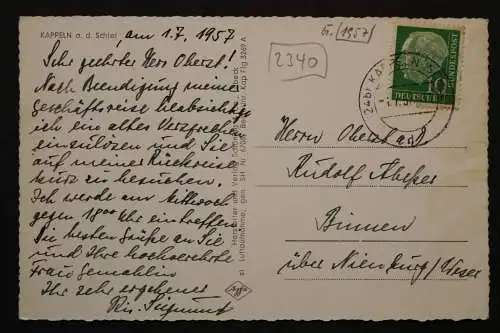 KAPPELN a. d. Schlei, am 1.7. 1957
Sehr geehrter Herr Oberst!
Nach Beendigung meiner
Geschäftsreise beabsichtige
ich ein altes Versprechen
einzulösen und Sie
auf meiner Rückreise
kurz zu besuchen.
Ich werde am Mittwoch
gegen 18⁰⁰ Uhr eintreffen.
Die besten Grüße an Sie
und Ihre hochverehrte
Frau Gemahlin
Ihr sehr ergebener
Hersteller und Verlag
Luftaufnahme, gen. SH
Kap Flg 3269 A
Agfa
[2340]
/1957/
DEUTSCHE BUNDESPOST
10
Herrn Oberst a.D.
Rudolf
Binnen
über Nienburg/Weser